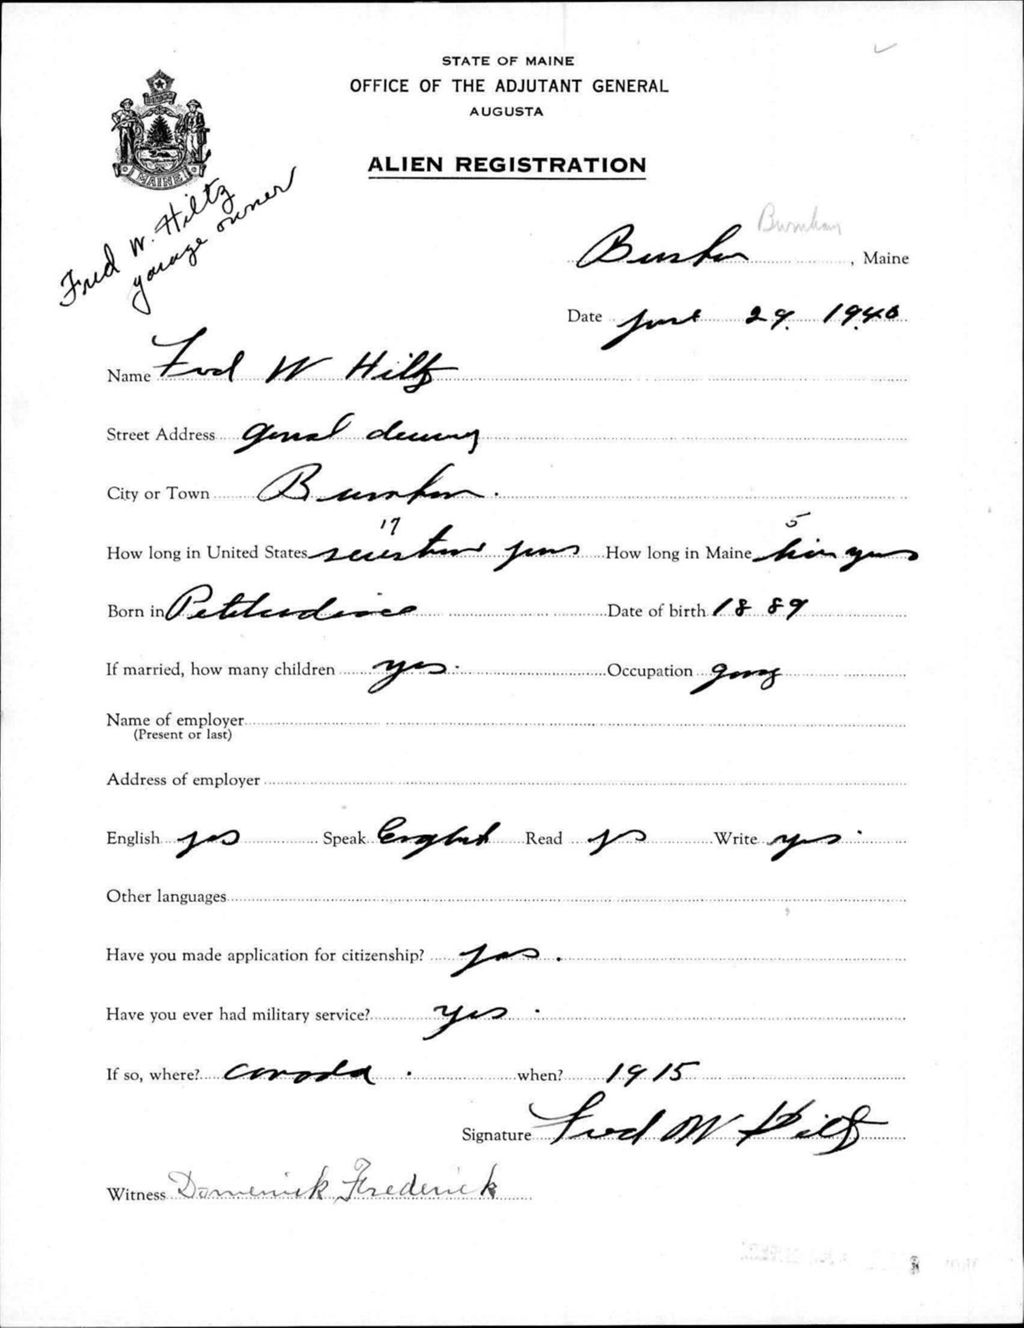 STATE OF MAINE
OFFICE OF THE ADJUTANT GENERAL
AUGUSTA
ALIEN REGISTRATION
MAINE
Fred W. Hiltz
garage owner
Burnham
, Maine
Date June 29. 1940
Name Fred W Hiltz
Street Address
City or Town Burnham.
17 5
How long in United States years How long in Maine years
Born in Date of birth 1889
If married, how many children yes. Occupation
Name of employer
(Present or last)
Address of employer
English yes Speak English Read yes Write yes.
Other languages
Have you made application for citizenship? yes.
Have you ever had military service? yes.
If so, where? Canada. when? 1915
Signature Fred W Hiltz
Witness Dominick Frederick